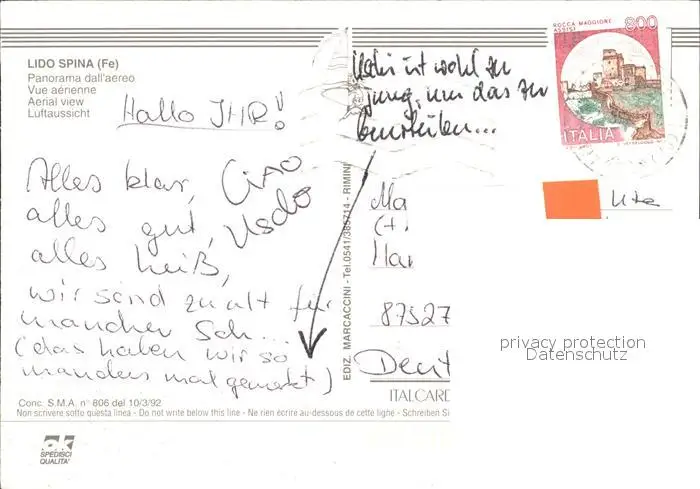 LIDO SPINA (Fe)
Panorama dall'aereo
Vue aérienne
Aerial view
Luftaussicht
Hallo IHR!
Alles klar,
alles gut,
alles heiß,
wir sind zu alt für
mancher Sch...
(das haben wir so
manders mal gemerkt)
CiAO
ist wohl zu
jung, um das zu
beurteilen...
ROCCA MAGGIORE
ASSISI
800
ITALIA
EDIZ. MARCACCINI - Tel. 0541/385714 - RIMINI
Ute
Ma
87527
Deut
privacy protection
Datenschutz
ITALCARD
Conc. S.M.A. n° 806 del 10/3/92
Non scrivere sotto questa linea - Do not write below this line - Ne rien écrire au-dessous de cette ligne - Schreiben Si
ak
SPEDISCI
QUALITA'